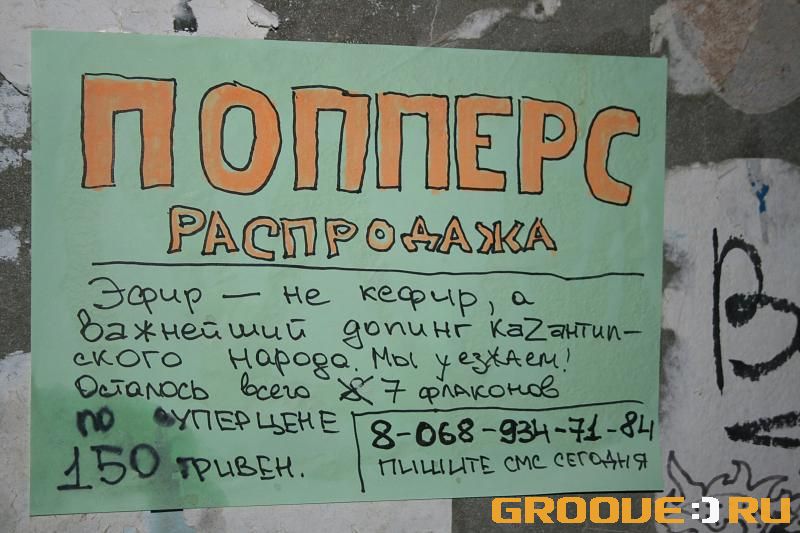 ПОППЕРС
РАСПРОДАЖА
Эфир — не кефир, а
важнейший допинг каZантип-
ского народа. Мы уезжаем!
Осталось всего 7 флаконов
по СУПЕРЦЕНЕ
150 гривен.
8-068-934-71-84
ПИШИТЕ СМС СЕГОДНЯ
В
GROOVE:)RU